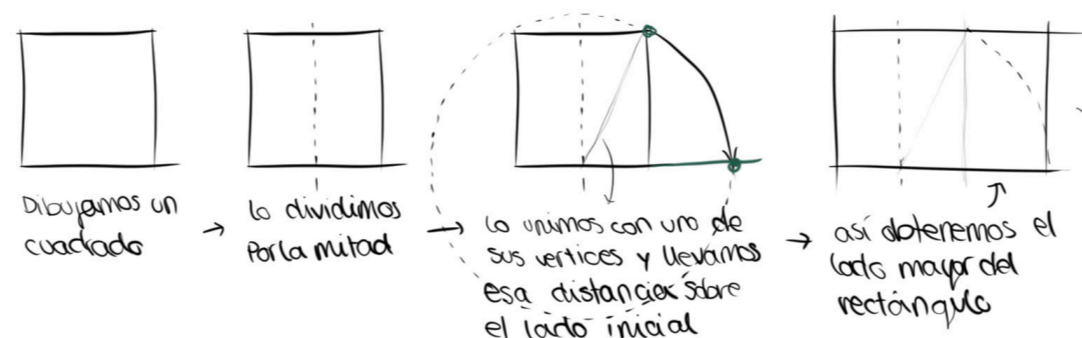 Dibujamos un
cuadrado
→ lo dividimos
por la mitad
→ lo unimos con uno de
sus vertices y llevamos
esa distancia sobre
el lado inicial
→ así obtenemos el
lado mayor del
rectángulo